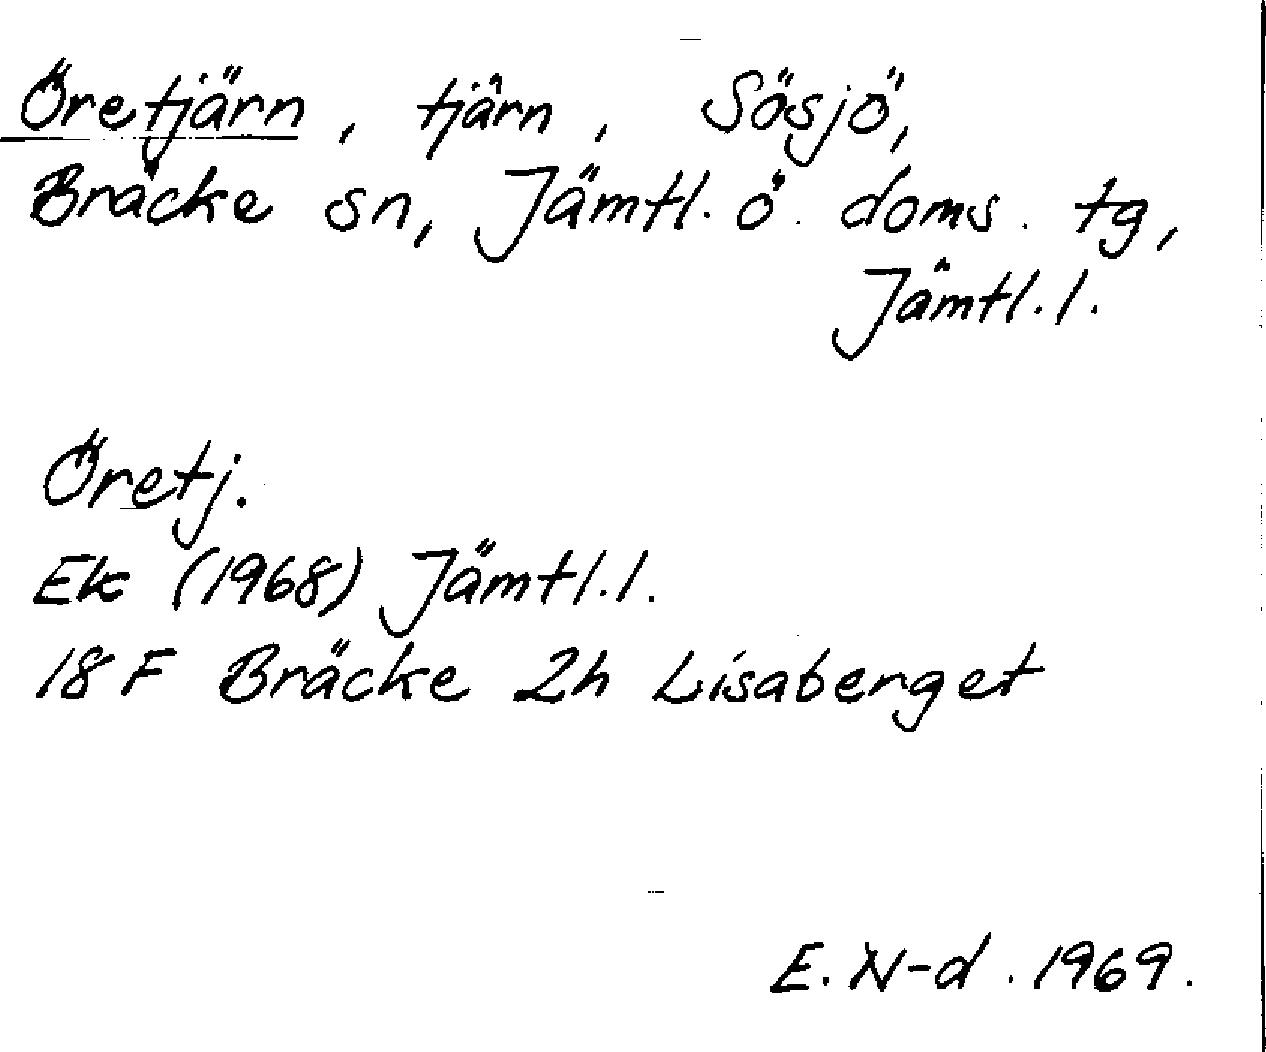 Öretjärn, tjärn, Sösjö,
Bräcke sn, Jämtl. ö. doms. tg,
Jämtl. l.
Öretj.
Ek (1968) Jämtl. l.
18 F Bräcke 2h Lisaberget
E. N-d. 1969.